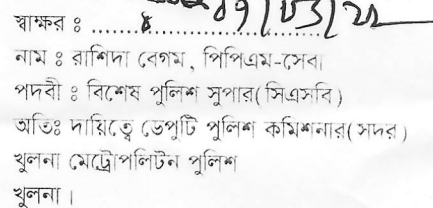 স্বাক্ষর ঃ ....................
09/03/22
নাম ঃ রাশিদা বেগম, পিপিএম-সেবা
পদবী ঃ বিশেষ পুলিশ সুপার(সিএসবি)
অতিঃ দায়িত্বে ডেপুটি পুলিশ কমিশনার(সদর)
খুলনা মেট্রোপলিটন পুলিশ
খুলনা।